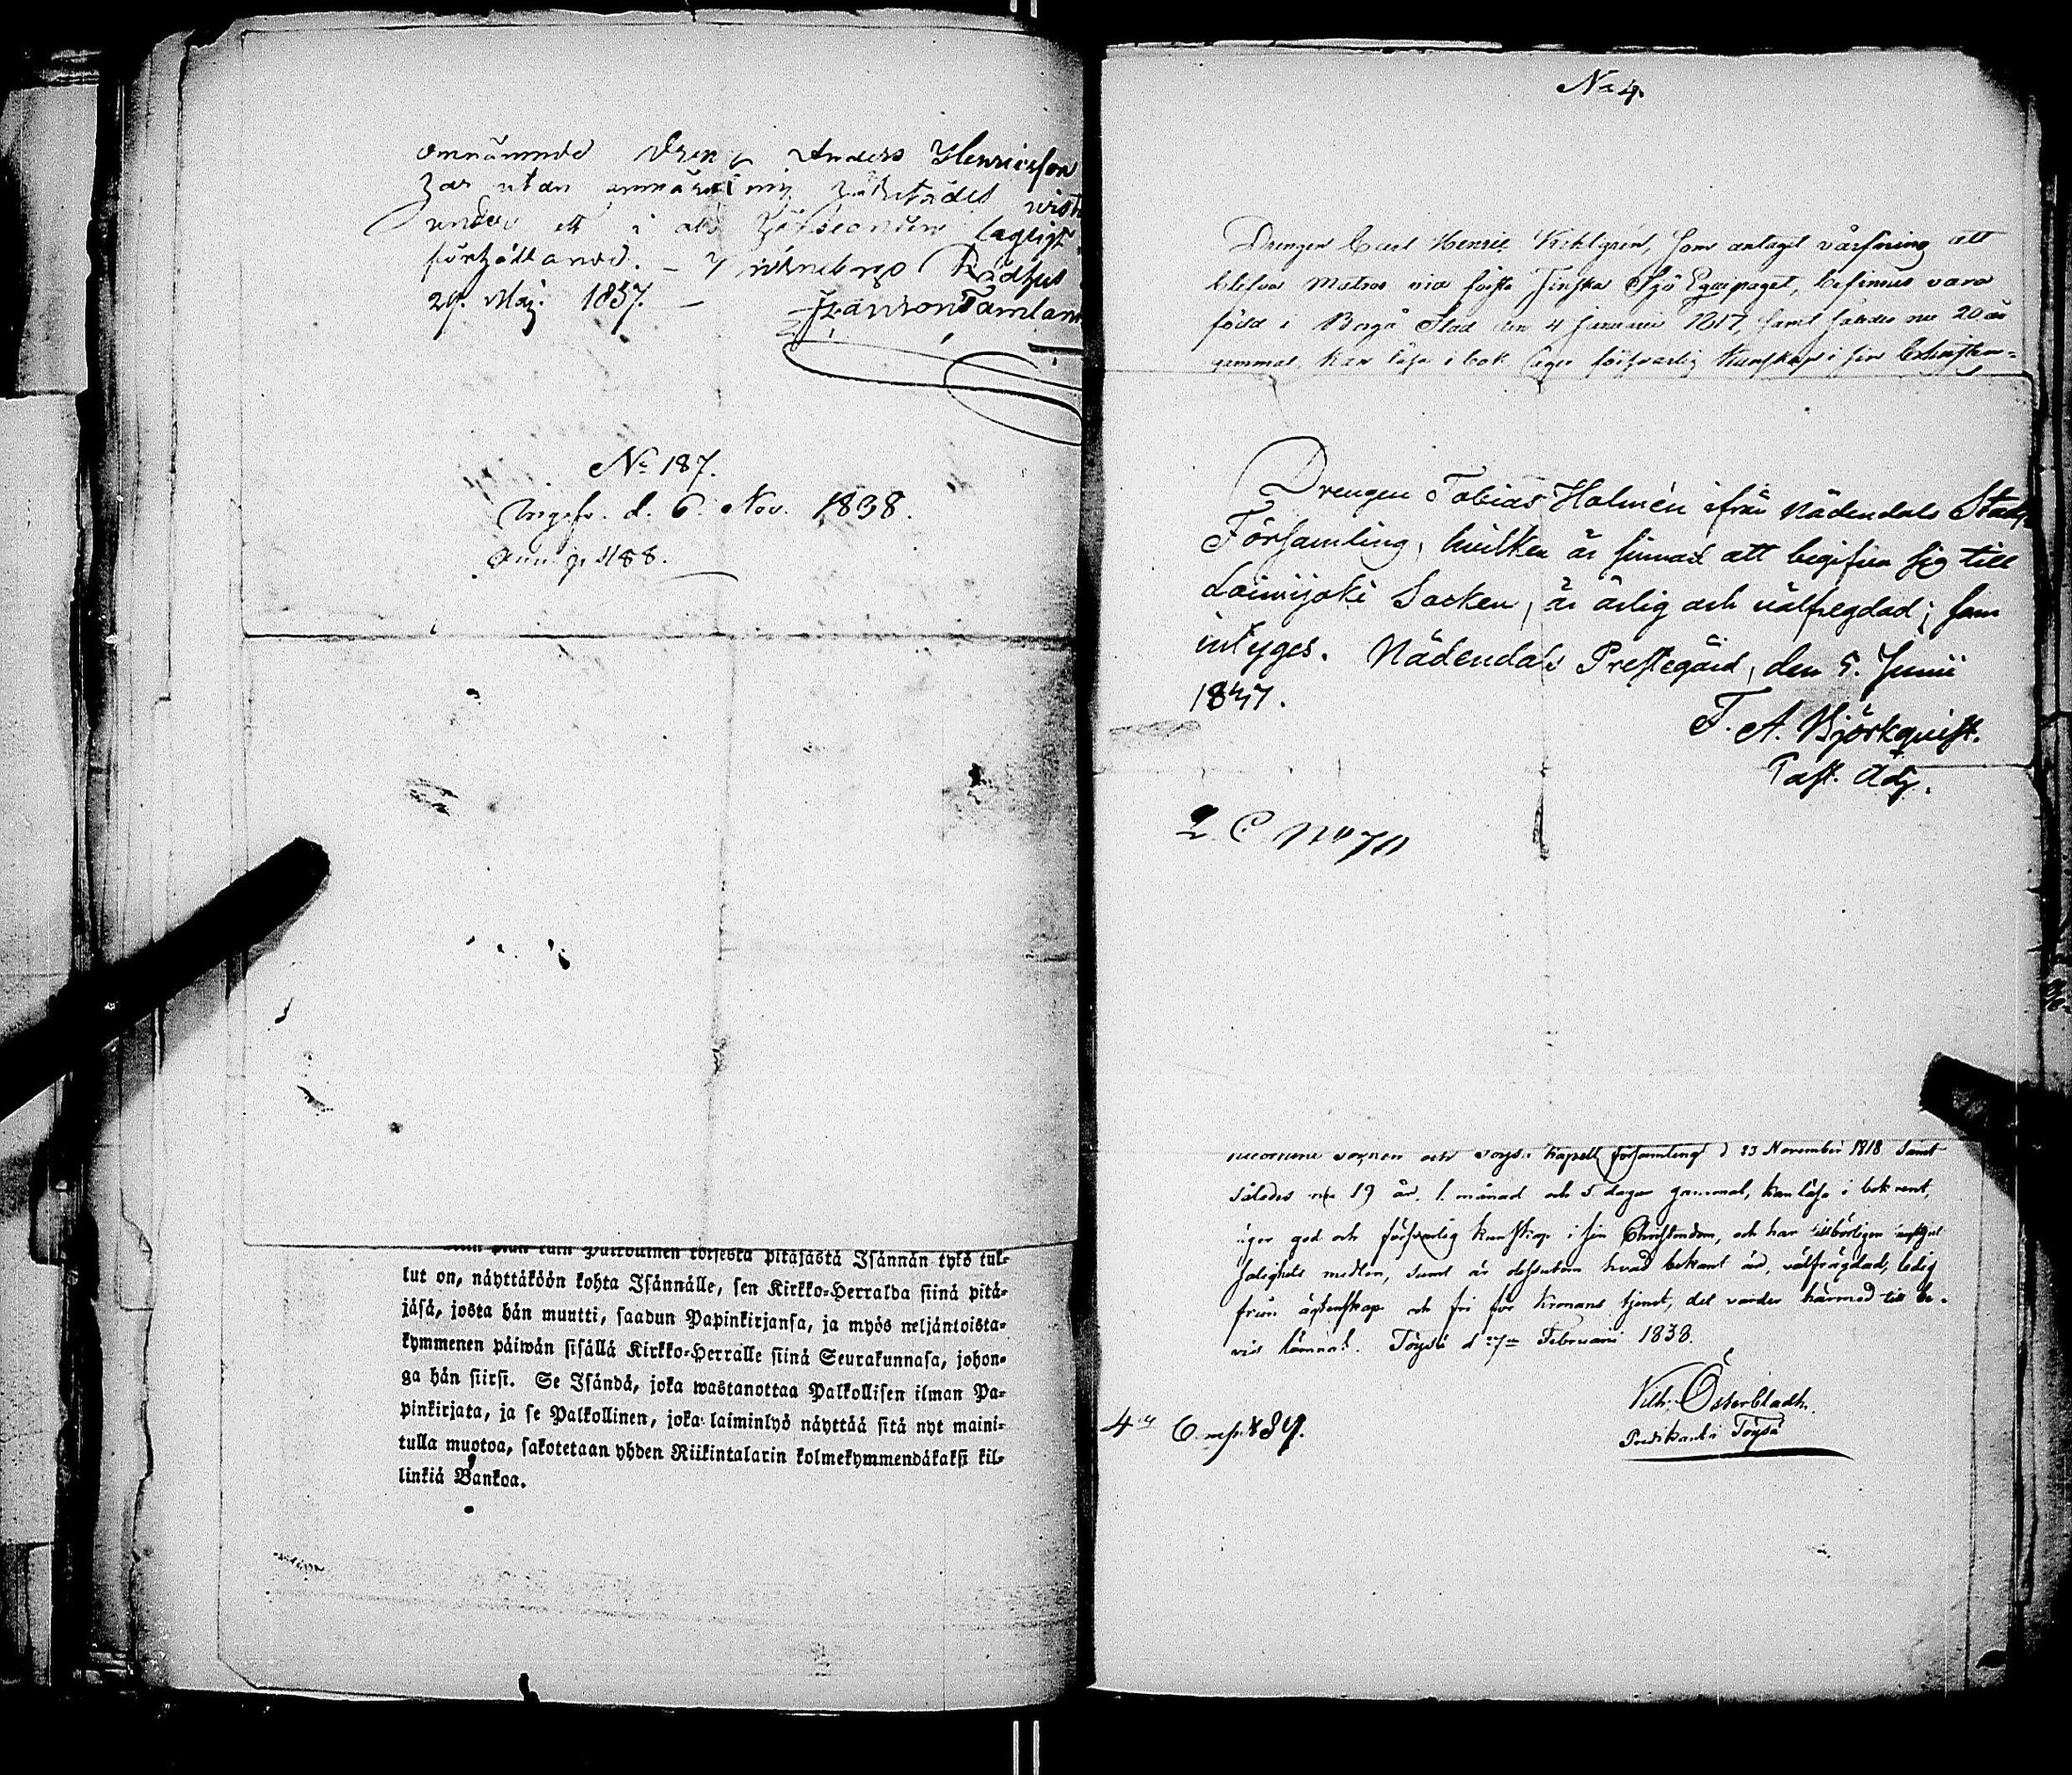 omnämnde Dreng Anders Henricsson
har utan anmärkning härstädes vist
under ett i alt hänseende lagligt
förhållande. – Björneborgs Rådhus
29. Maj. 1837. –
No 187.
Ungefr. d. 6. Nov. 1838.
p 488.
Palkollinen toisesta pitäjästä Isännän tykö tul-
lut on, näyttäköön kohta Isännälle, sen Kirkko-Herralda siinä pitä-
jäsä, josta hän muutti, saadun Papinkirjansa, ja myös neljäntoista-
kymmenen päiwän sisällä Kirkko-Herralle siinä Seurakunnasa, johon-
ga hän siirsi. Se Isändä, joka wastanottaa Palkollisen ilman Pa-
pinkirjata, ja se Palkollinen, joka laiminlyö näyttää sitä nyt maini-
tulla muotoa, sakotetaan yhden Riikintalarin kolmekymmendäkaksi kil-
linkiä Bankoa.
No 4.
Drengen Carl Henric, som antagit värfning att
blifva Matros vid första Finska Sjö Equipaget, befinnes vara
född i Borgå Stad den 4 Januarii 1817, samt således nu 20 år
gammal, kan läsa i bok, äger försvarlig kunskap i sin Christen-
Drengen Tobias Holmén ifrån Nådendals Stads
Församling, hvilken är sinnad att begifva sig till
Loimijoki Socken, är ärlig och välfregdad; som
intyges. Nådendals Prestegård, den 5. Junii
1837.
F. A. Björkquist.
Past. Adj.
2 C No 70
socknen och Töysä Kapell församling d 23 November 1818 samt
således nu 19 år, 1. månad och 5 dagar gammal, kan läsa i bok rent,
äger god och försvarlig kunskap i sin Christendom, och har tillbörligen
salighets medlen, samt är dessutom hvad bekant är, välfrägdad, ledig
från äktenskap och fri för Kronans tjenst, det varder härmed till be-
vis lämnat. Töysä d 7de Februarii 1838.
Vilh. Österbladh.
Predikant i Töysä
4de Comp. No 89.